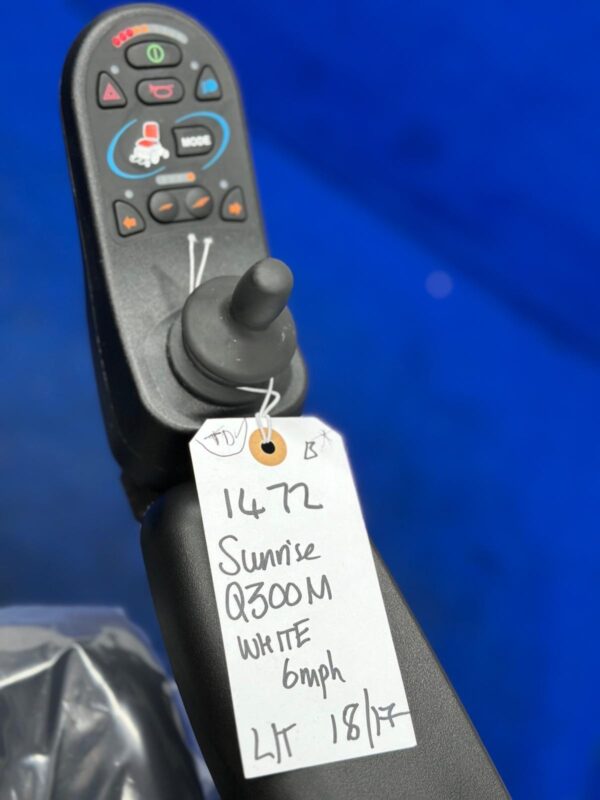 MODE
TD B
1472
Sunrise
Q300M
WHITE
6mph
L/T 18/17